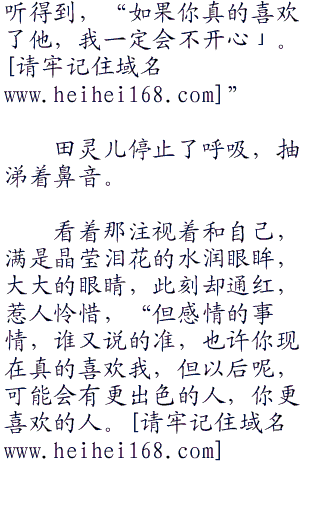 听得到，“如果你真的喜欢
了他，我一定会不开心」。
[请牢记住域名
www.heihei168.com]”
田灵儿停止了呼吸，抽
涕着鼻音。
看着那注视着和自己，
满是晶莹泪花的水润眼眸，
大大的眼睛，此刻却通红，
惹人怜惜，“但感情的事
情，谁又说的准，也许你现
在真的喜欢我，但以后呢，
可能会有更出色的人，你更
喜欢的人。[请牢记住域名
www.heihei168.com]